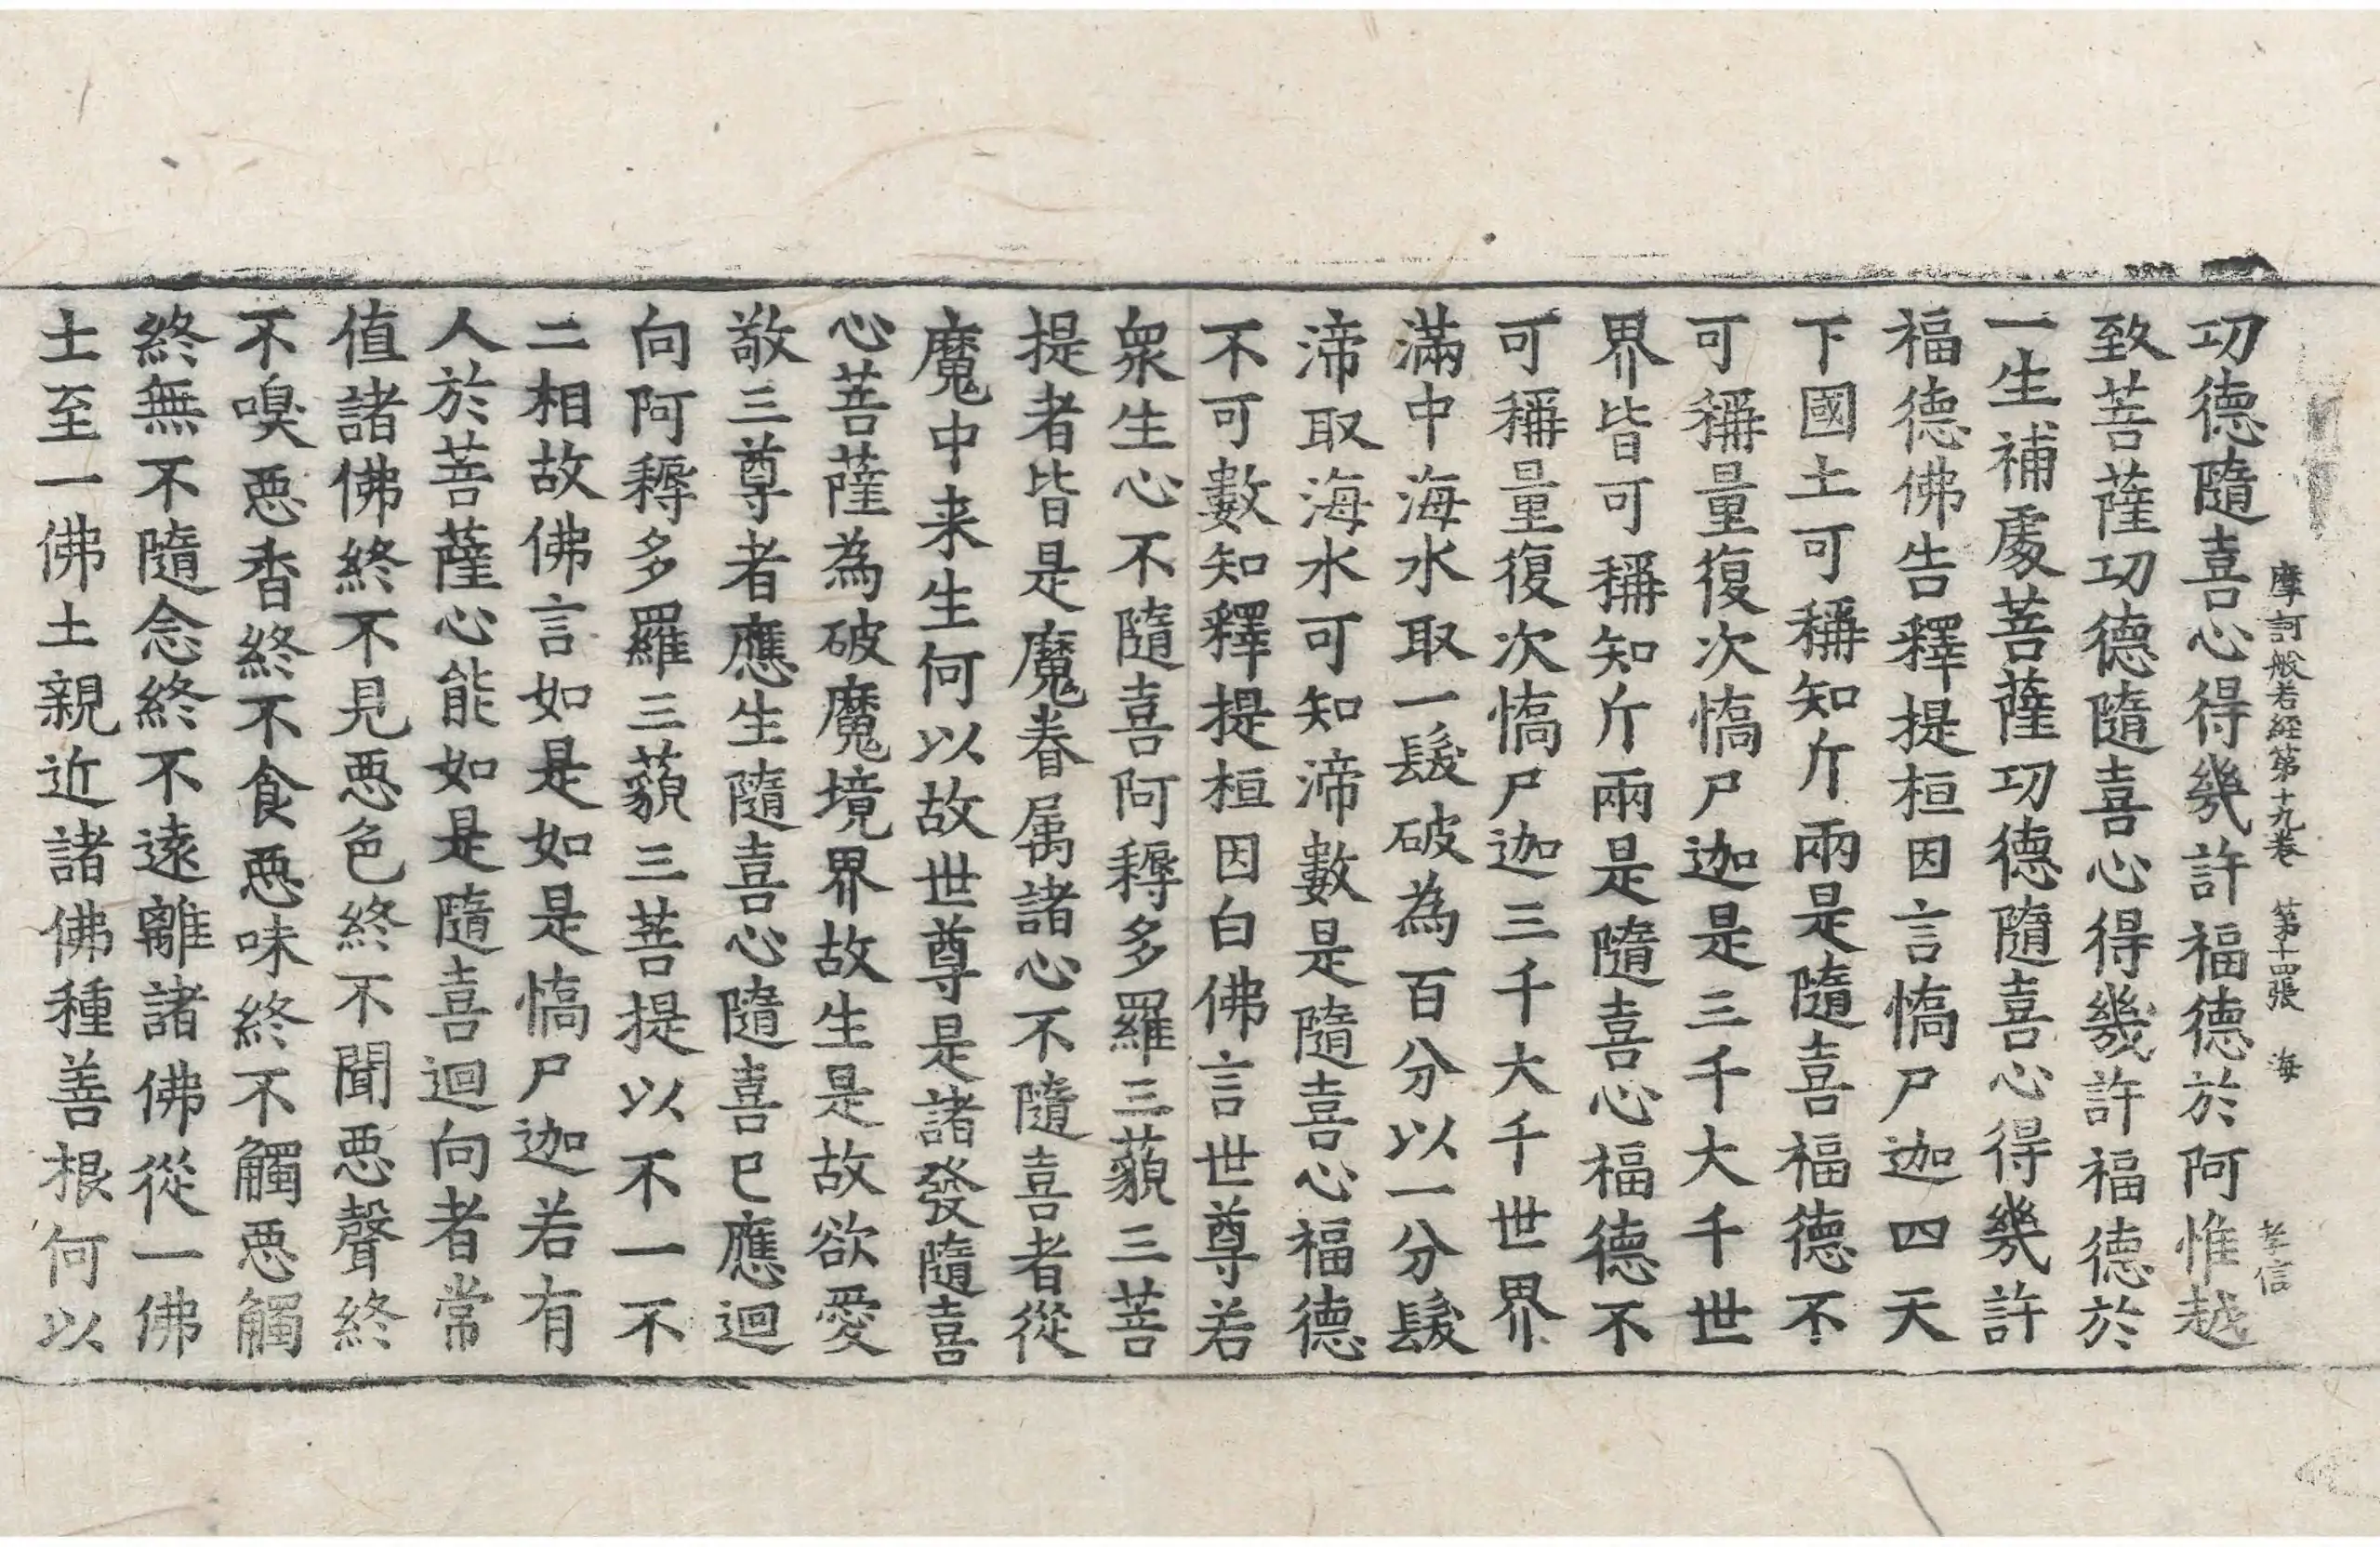 摩訶般若経第十九卷 第十四張 海 孝信
功德隨喜心得幾許福德於阿惟越
致菩薩功德隨喜心得幾許福德於
一生補處菩薩功德隨喜心得幾許
福德佛告釋提桓因言憍尸迦四天
下國土可稱知斤兩是隨喜福德不
可稱量復次憍尸迦是三千大千世
界皆可稱知斤兩是隨喜心福德不
可稱量復次憍尸迦三千大千世界
滿中海水取一髮破為百分以一分髮
渧取海水可知渧數是隨喜心福德
不可數知釋提桓因白佛言世尊若
衆生心不隨喜阿耨多羅三藐三菩
提者皆是魔眷属諸心不隨喜者從
魔中来生何以故世尊是諸發隨喜
心菩薩為破魔境界故生是故欲愛
敬三尊者應生隨喜心隨喜已應迴
向阿耨多羅三藐三菩提以不一不
二相故佛言如是如是憍尸迦若有
人於菩薩心能如是隨喜迴向者常
值諸佛終不見惡色終不聞惡聲終
不嗅惡香終不食惡味終不觸惡觸
終無不隨念終不遠離諸佛從一佛
土至一佛土親近諸佛種善根何以